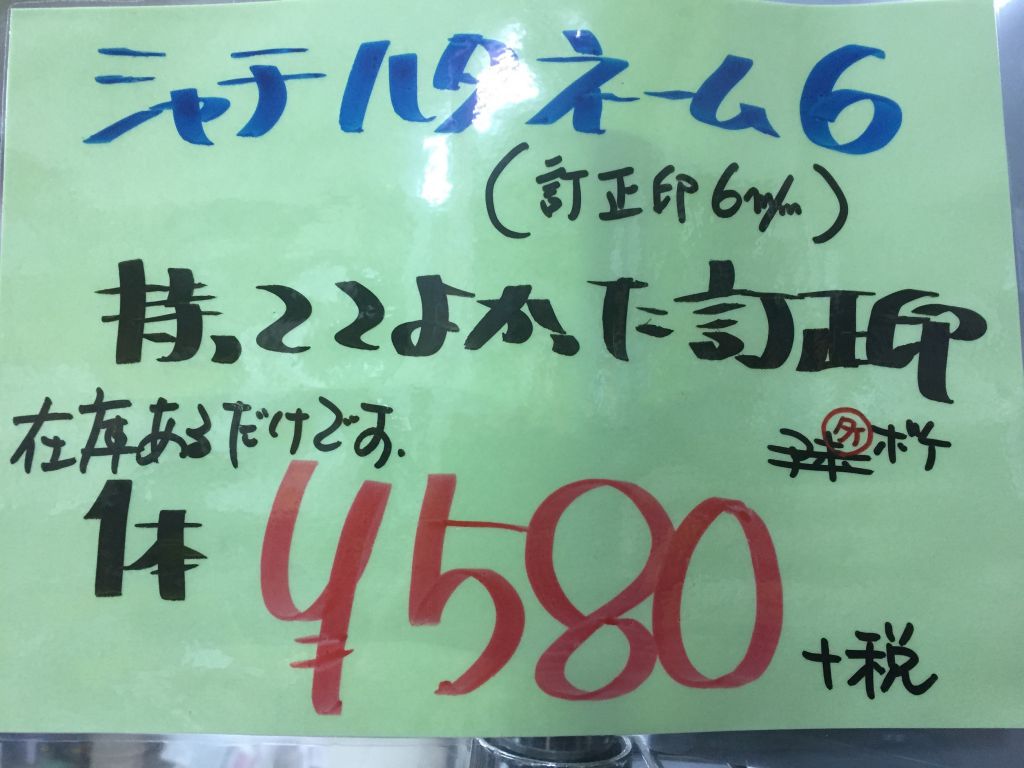 シャチハタネーム6
(訂正印6m/m)
持っててよかった訂正印
在庫あるだけです.
アホ タケ ボケ
1本 ¥580 +税